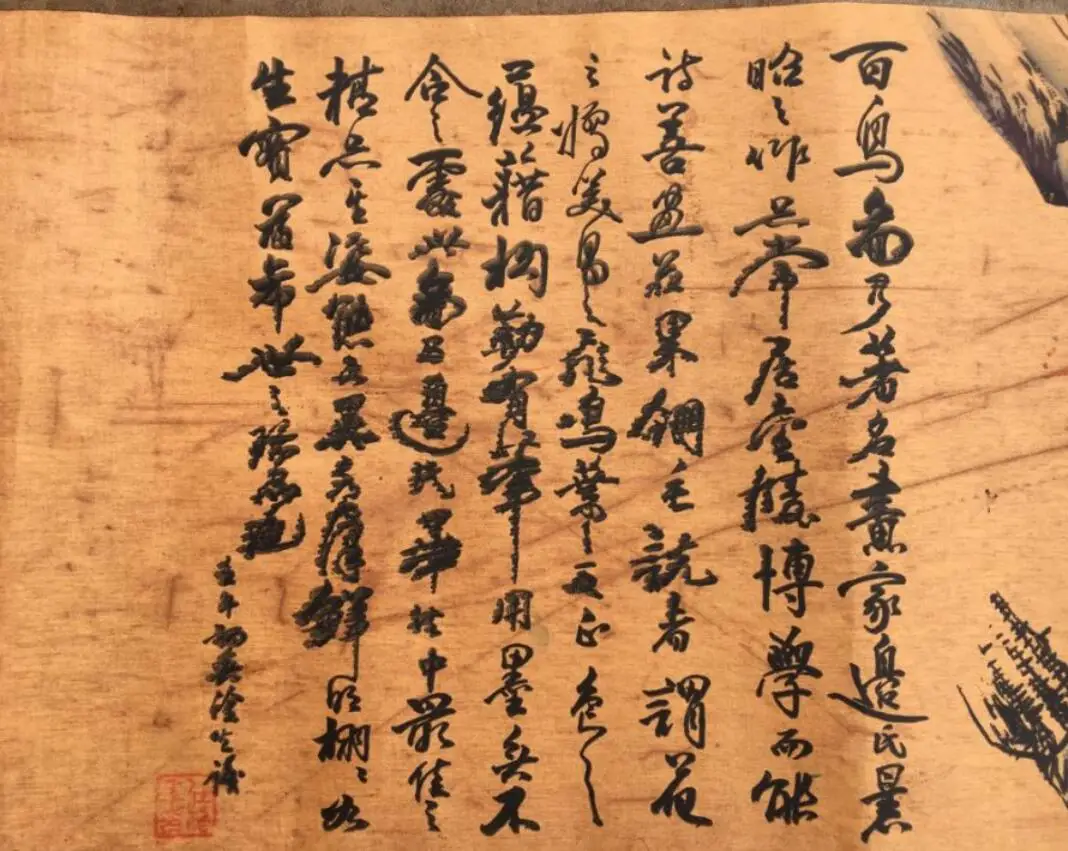 百鳥圖乃著名畫家邊氏景
昭之作品常居金陵博學而能
詩善畫花果翎毛説者謂花
之嬌美鳥之飛鳴葉之反正色之
蘊藉枃勒有筆用墨無不
合之處此圖乃邊氏中最佳之
精品其姿態各異色澤鮮明栩栩如
生實屬希世之珍品也
壬午初